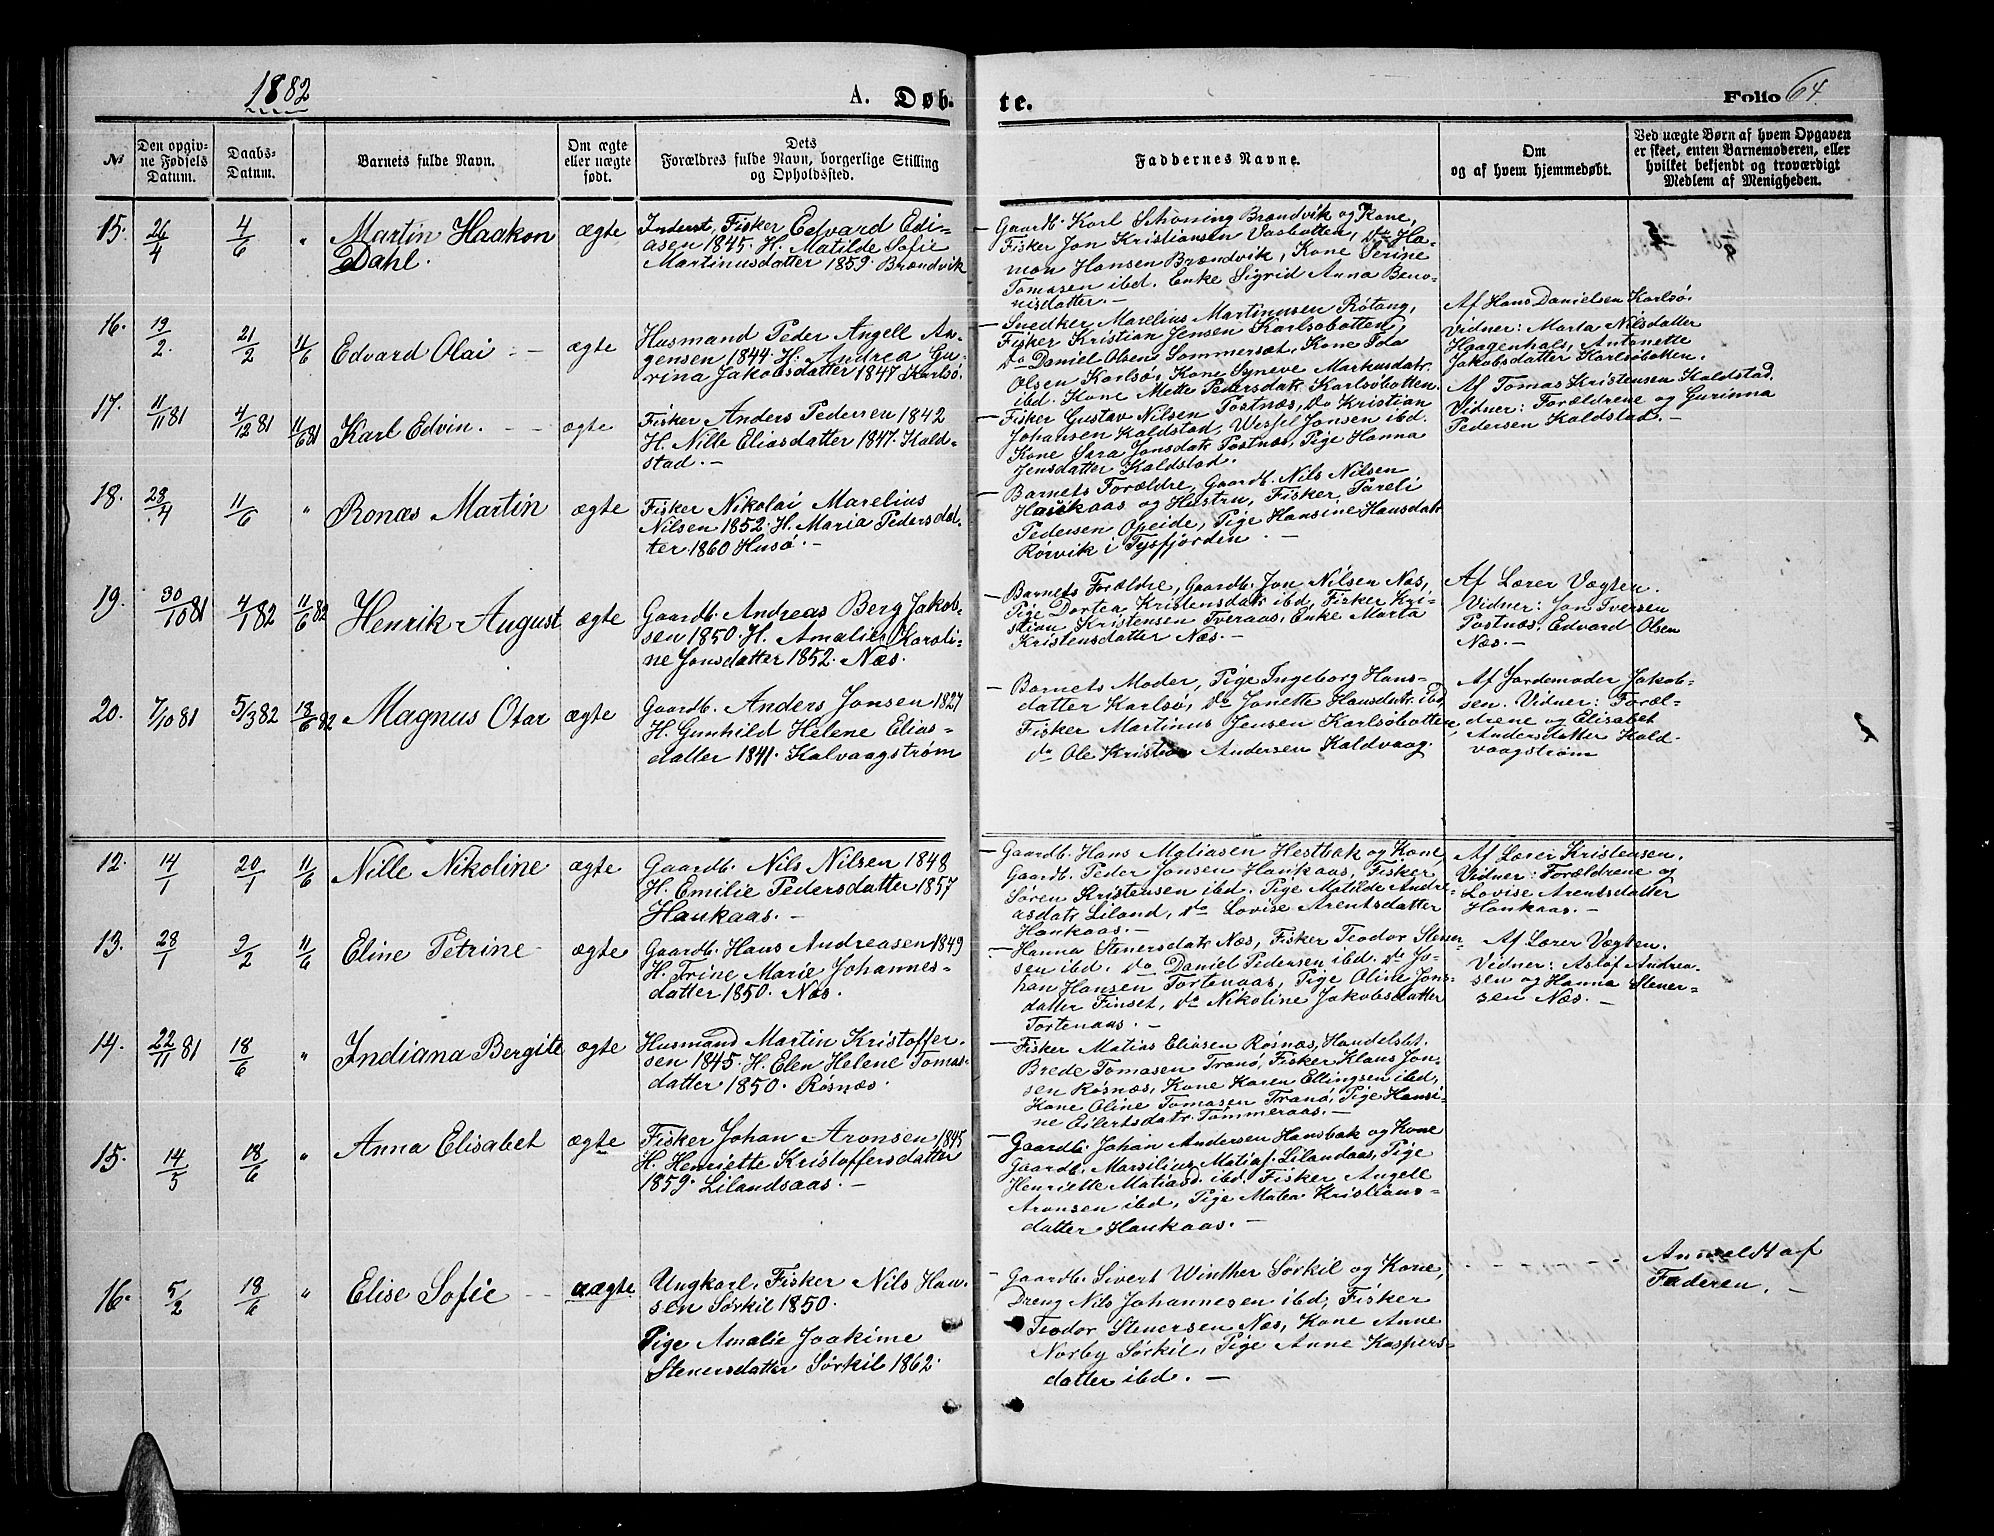 1882
A. Døb- te.
Folio 64.
No
Den opgiv-
ne Fødsels
Datum.
Daabs-
Datum.
Barnets fulde Navn.
Om ægte
eller uægte
født.
Dets
Forældres fulde Navn, borgerlige Stilling
og Opholdssted.
Faddernes Navne.
Om
og af hvem hjemmedøbt.
Ved uægte Børn af hvem Opgaven
er skeet, enten Barnemoderen, eller
hvilket bekjendt og troværdigt
Medlem af Menigheden.
15. 26/4 4/6 "
Martin Haakon
Dahl.
ægte
Inderst, Fisker Edvard Edi-
asen 1845. H. Matilde Sofie
Martinusdatter 1859. Brændvik
- Gaardb. Karl Schøning Brændvik og Kone,
Fisker Jon Kristiansen Vasbotten, do Ha-
mon Hansen Brændvik, Kone Serine
Tomasen ibd. Enke Sigrid Anna Beno-
nisdatter. -
16. 19/2. 21/2 11/6
Edvard Olai - -
ægte
Husmand Peder Angell An-
gensen 1844. H. Andrea Gu-
rina Jakobsdatter 1847 Karlsö.
- Snedker Marelius Martinusen Røtang,
Fisker Kristian Jensen Karlsöbotten,
do Daniel Olsen Sommersæt, Kone Ida
Olsen Karlsö, Kone Syneve Markusdatr.
ibd. Kone Mette Pedersdatr. Karlsöbotten.
Af Hans Danielsen Karlsö.
Vidner: Marta Nilsdatter
Haagenhals, Antonette
Jakobsdatter Karlsöbotten.
17. 11/11 81 4/12 81 11/6 81
Karl Edvin. - -
ægte
Fisker Anders Pedersen 1842
H. Nille Eliasdatter 1847. Kald-
stad. -
- Fisker Gustav Nilsen Postnæs, do Kristian
Johansen Kaldstad, Wessel Jonsen ibd.
Kone Sara Jonsdatr. Postnæs, Pige Hanna
Jensdatter Kaldstad.
Af Tomas Kristensen Kaldstad.
Vidner: Forældrene og Gurinna
Pedersen Kaldstad. -
18. 28/4 11/6 "
Ronæs Martin
ægte
Fisker Nikolai Marelius
Nilsen 1852. H. Maria Pedersdat-
ter 1860 Husö. -
- Barnets Forældre, Gaardb. Nils Nilsen
Haukaas og Hustru, Fisker Pareli
Pedersen Opeide, Pige Hansine Hansdatr.
Rörvik i Tysfjorden. -
19. 30/10 81 4/1 82 11/6 82
Henrik August
ægte
Gaardb. Andreas Berg Jakob-
sen 1850. H. Amalie Karoli-
ne Jonsdatter 1852. Næs.
- Barnets Forældre, Gaardb. Jon Nilsen Næs,
Pige Dortea Kristensdatr. ibd, Fisker Kri-
stian Kristensen Tveraas, Enke Marta
Kristensdatter Næs. -
Af Lærer Vægten.
Vidner: Jon Iversen
Postnæs, Edvard Olsen
Næs. -
20. 7/10 81 5/3 82 18/6 82
Magnus Otar
ægte
Gaardb. Anders Jonsen 1827
H. Gunhild Helene Elias-
datter 1841. Kalvaagstrøm
- Barnets Moder, Pige Ingeborg Hans-
datter Karlsö, do Jonette Hansdatr. ibd,
Fisker Martinus Jensen Karlsöbotten,
do Ole Kristian Andersen Kaldvaag.
Af Jordemoder Jakob-
sen. Vidner: Foræl-
drene og Elisabet
Andersdatter Kald-
vaagstrøm
12. 14/1 20/1 11/6
Nille Nikoline
ægte
Gaardb. Nils Nilsen 1848
H. Emilie Pedersdatter 1857
Haukaas. -
- Gaardb. Hans Matiasen Hestbak og Kone,
Gaardb. Peder Jonsen Haukaas, Fisker
Sören Kristensen ibd. Pige Matilde Andre-
asdatr. Liland, do Lovise Arentsdatter
Haukaas. -
Af Lærer Kristensen.
Vidner: Forældrene og
Lovise Arentsdatter
Haukaas. -
13. 28/1 9/2 11/6
Eline Petrine -
ægte
Gaardb. Hans Andreasen 1849
H. Trine Marie Johannes-
datter 1850. Næs.
- Hanna Stenersdatr. Næs, Fisker Teodor Stener-
sen ibd. do Daniel Pedersen ibd. do Jo-
han Hansen Tortenaas, Pige Oline Jons-
datter Finset, do Nikoline Jakobsdatter
Tortenaas. -
Af Lærer Vægten.
Vidner: Aslof Andrea-
sen og Hanna Stener-
sen Næs. -
14. 22/11 81 18/6 "
Indiana Bergite
ægte
Husmand Martin Kristoffer-
sen 1845. H. Elen Helene Tomas-
datter 1850. Røsnæs.
- Fisker Matias Eliasen Røsnæs, Handelsbt.
Brede Tomasen Tranö, Fisker Klaus Jon-
sen Røsnæs, Kone Karen Ellingsen ibd,
Kone Oline Tomasen Tranö, Pige Hansi-
ne Eilertsdatr. Tømmeraas. -
15. 14/5 18/6 "
Anna Elisabet
ægte
Fisker Johan Aronsen 1845
H. Henriette Kristoffersdatter
1859. Lilandsaas. -
- Gaardb. Johan Andersen Hansbak og Kone
Gaardb. Marsilius Matias. Lilandaas, Pige
Henriette Matiasd. ibd. Fisker Angell
Aronsen ibd, Pige Matea Kristians-
datter Haukaas. -
16. 5/2 18/6 "
Elise Sofie - -
uægte
Ungkarl, Fisker Nils Han-
sen Sørkil 1850.
Pige Amalie Joakime
Stenersdatter Sørkil 1862.
- Gaardb. Sivert Winther Sørkil og Kone,
Dreng Nils Johannesen ibd, Fisker
Teodor Stenersen Næs, Kone Anne
Norby Sørkil, Pige Anne Kaspers-
datter ibd. -
Anmeldt af
Faderen. -